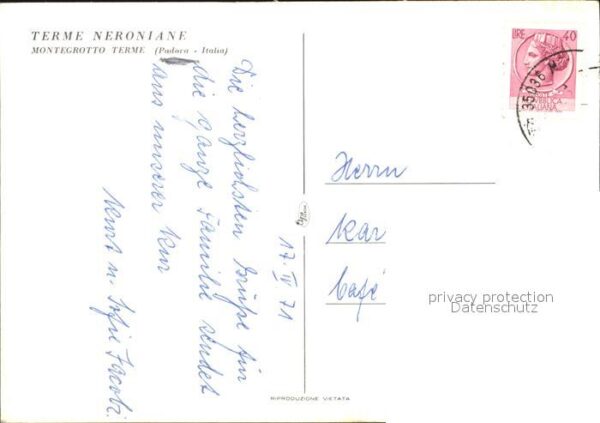 TERME NERONIANE
MONTEGROTTO TERME (Padova - Italia)
17. IV 71
Die herzlichsten Grüße für
die ganze Familie sendet
aus unserer Kur
Kurt u. Sofie Jacobi.
LIRE 40
35036
REPUBBLICA
ITALIANA
Herrn
Kar
Café
privacy protection
Datenschutz
RIPRODUZIONE VIETATA